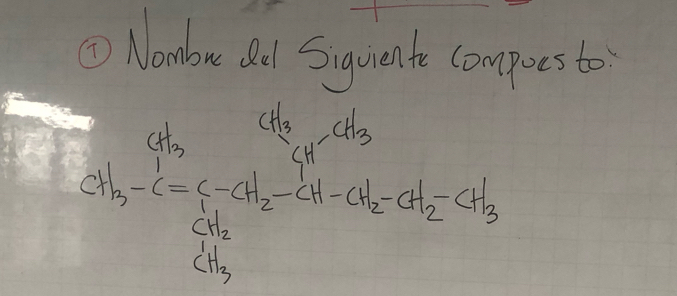 ① Nombre del Siguiente compuesto:
CH3 CH3
CH3 CH
CH3-C=C-CH2-CH-CH2-CH2-CH3
CH2
CH3